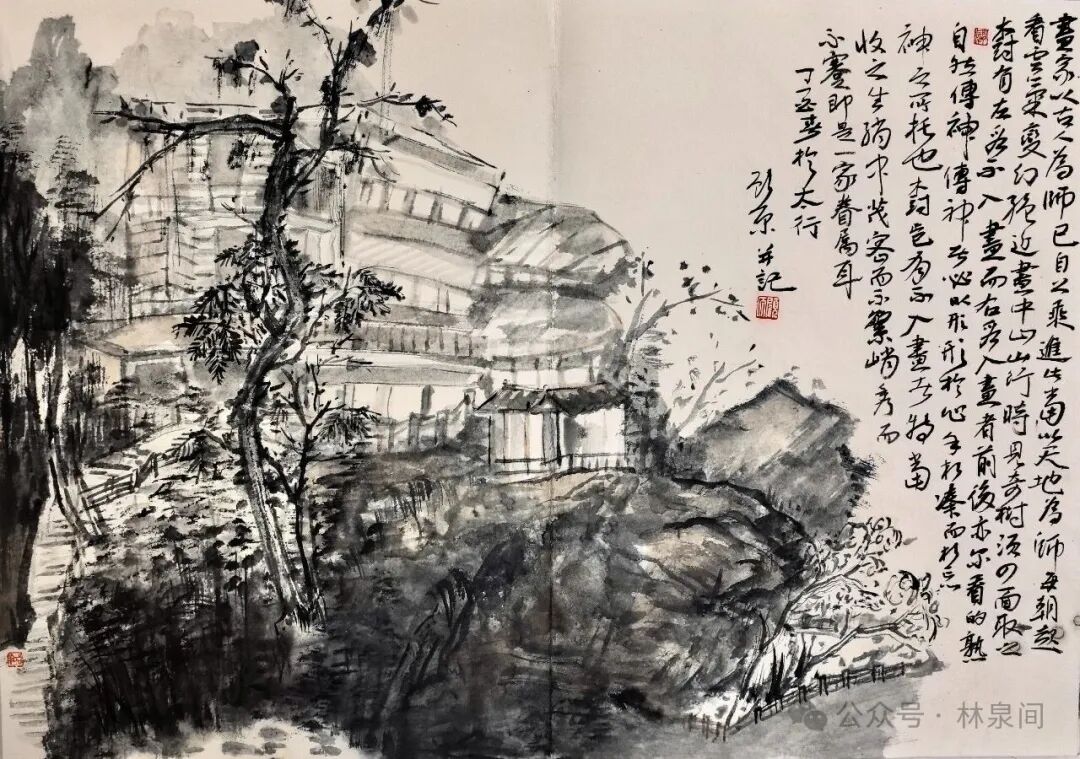 畫家以古人為師已自上乘進此當以天地為師每朝起
看雲氣變幻絕近畫中山山行時見奇樹須四面取之
樹有左看不入畫而右看入畫者前後亦爾看的熟
自然傳神傳神者必以形形於心手相湊而相忘
神之所托也樹豈有不入畫者特當
收之生綃中茂密而不繁峭秀而
不蹇即是一家眷屬耳
春於太行
并記
公众号·林泉间